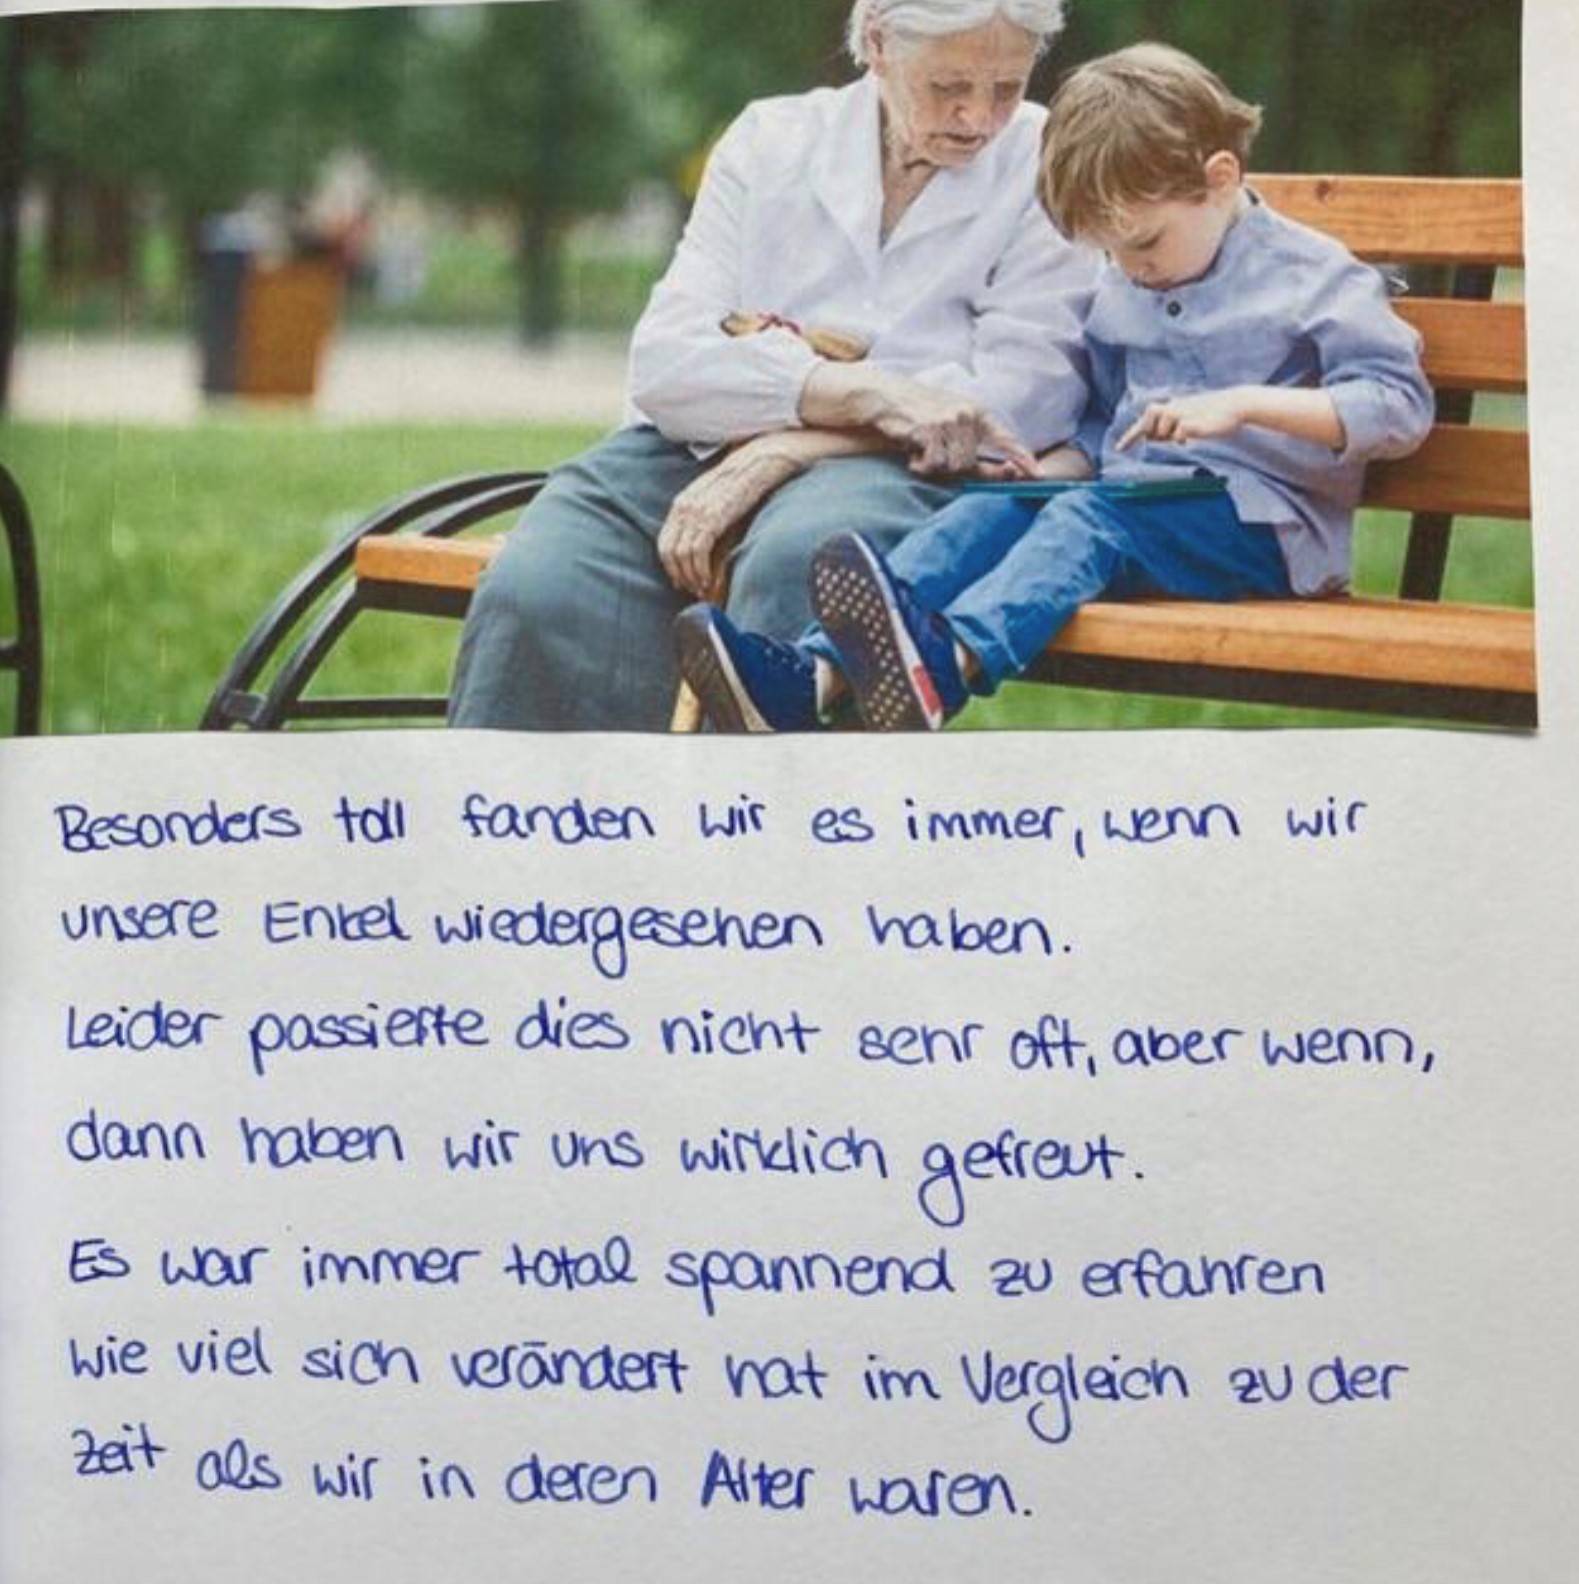 Besonders toll fanden wir es immer, wenn wir
unsere Enkel wiedergesehen haben.
Leider passierte dies nicht sehr oft, aber wenn,
dann haben wir uns wirklich gefreut.
Es war immer total spannend zu erfahren
wie viel sich verändert hat im Vergleich zu der
Zeit als wir in deren Alter waren.